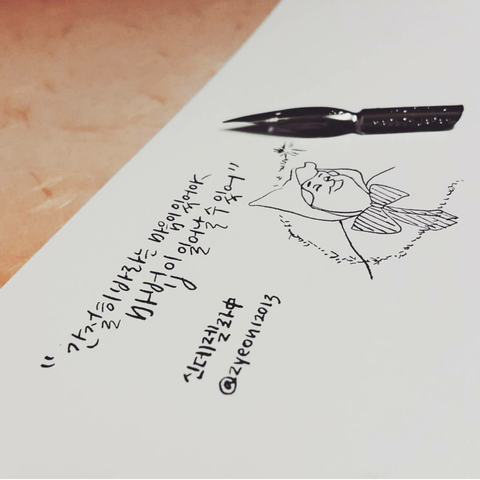 "간절히 바라는 마음이 있어야
마법이 일어날 수 있어"
신데렐라中
@zyeon12013